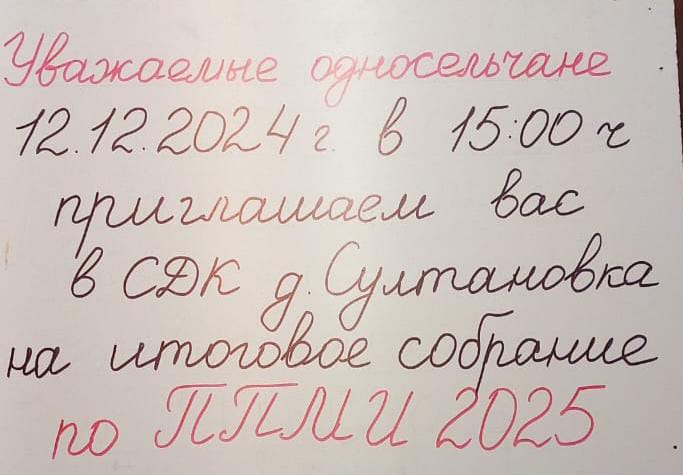 Уважаемые односельчане
12.12.2024 г. в 15:00 ч
приглашаем вас
в СДК д. Султановка
на итоговое собрание
по ППМИ 2025